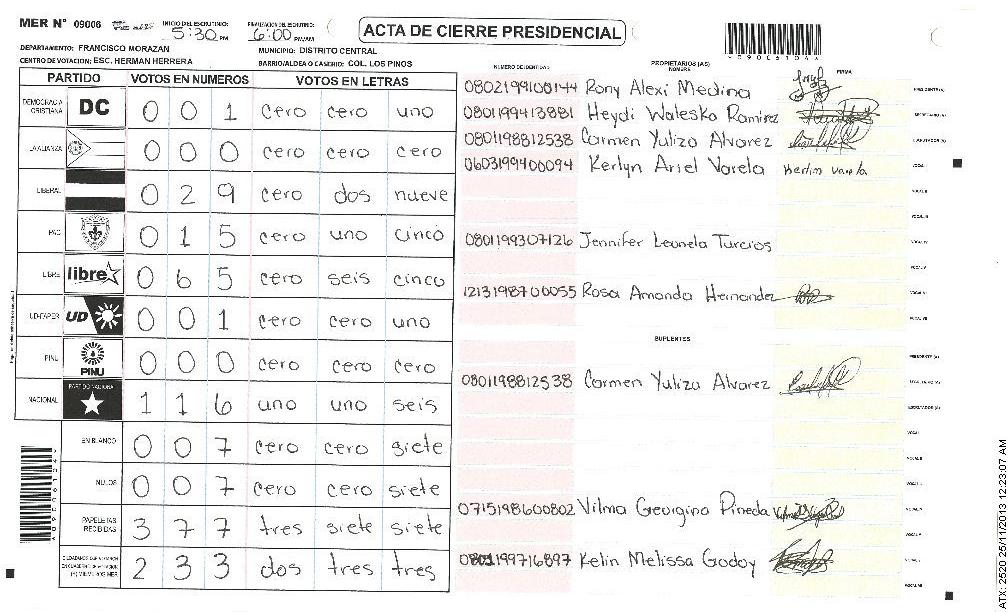 MER N° 09006 INICIO DEL ESCRUTINIO: 5:30 PM FINALIZACION DEL ESCRUTINIO: 6:00 PM/AM
ACTA DE CIERRE PRESIDENCIAL
DEPARTAMENTO: FRANCISCO MORAZAN MUNICIPIO: DISTRITO CENTRAL
CENTRO DE VOTACION: ESC. HERMAN HERRERA BARRIO/ALDEA O CASERIO: COL. LOS PINOS
PARTIDO VOTOS EN NUMEROS VOTOS EN LETRAS
DEMOCRACIA CRISTIANA DC 0 0 1 cero cero uno
LA ALIANZA 0 0 0 cero cero cero
LIBERAL 0 2 9 cero dos nueve
PAC 0 1 5 cero uno cinco
LIBRE libre 0 6 5 cero seis cinco
UD-FAPER UD 0 0 1 cero cero uno
PINU PINU 0 0 0 cero cero cero
NACIONAL PARTIDO NACIONAL 1 1 6 uno uno seis
EN BLANCO 0 0 7 cero cero siete
NULOS 0 0 7 cero cero siete
PAPELETAS RECIBIDAS 3 7 7 tres siete siete
2 3 3 dos tres tres
NUMERO DE IDENTIDAD PROPIETARIOS (AS) NOMBRE FIRMA
0802199100144 Rony Alexi Medina PRESIDENTE (A)
0801199413881 Heydi Waleska Ramirez SECRETARIO (A)
0801198812538 Carmen Yuliza Alvarez ESCRUTADOR (A)
0603199400094 Kerlyn Ariel Varela Kerlin Varela VOCAL I
VOCAL II
VOCAL III
0801199307126 Jennifer Leonela Turcios VOCAL IV
VOCAL V
1213198700055 Rosa Amanda Hernandez VOCAL VI
VOCAL VII
SUPLENTES
PRESIDENTE (A)
0801198812538 Carmen Yuliza Alvarez SECRETARIO (A)
ESCRUTADOR (A)
VOCAL I
VOCAL II
VOCAL III
0715198600802 Vilma Georgina Pineda VOCAL IV
VOCAL V
0801199716897 Kelin Melissa Godoy VOCAL VI
VOCAL VII
ATX: 2520 25/11/2013 12:23:07 AM